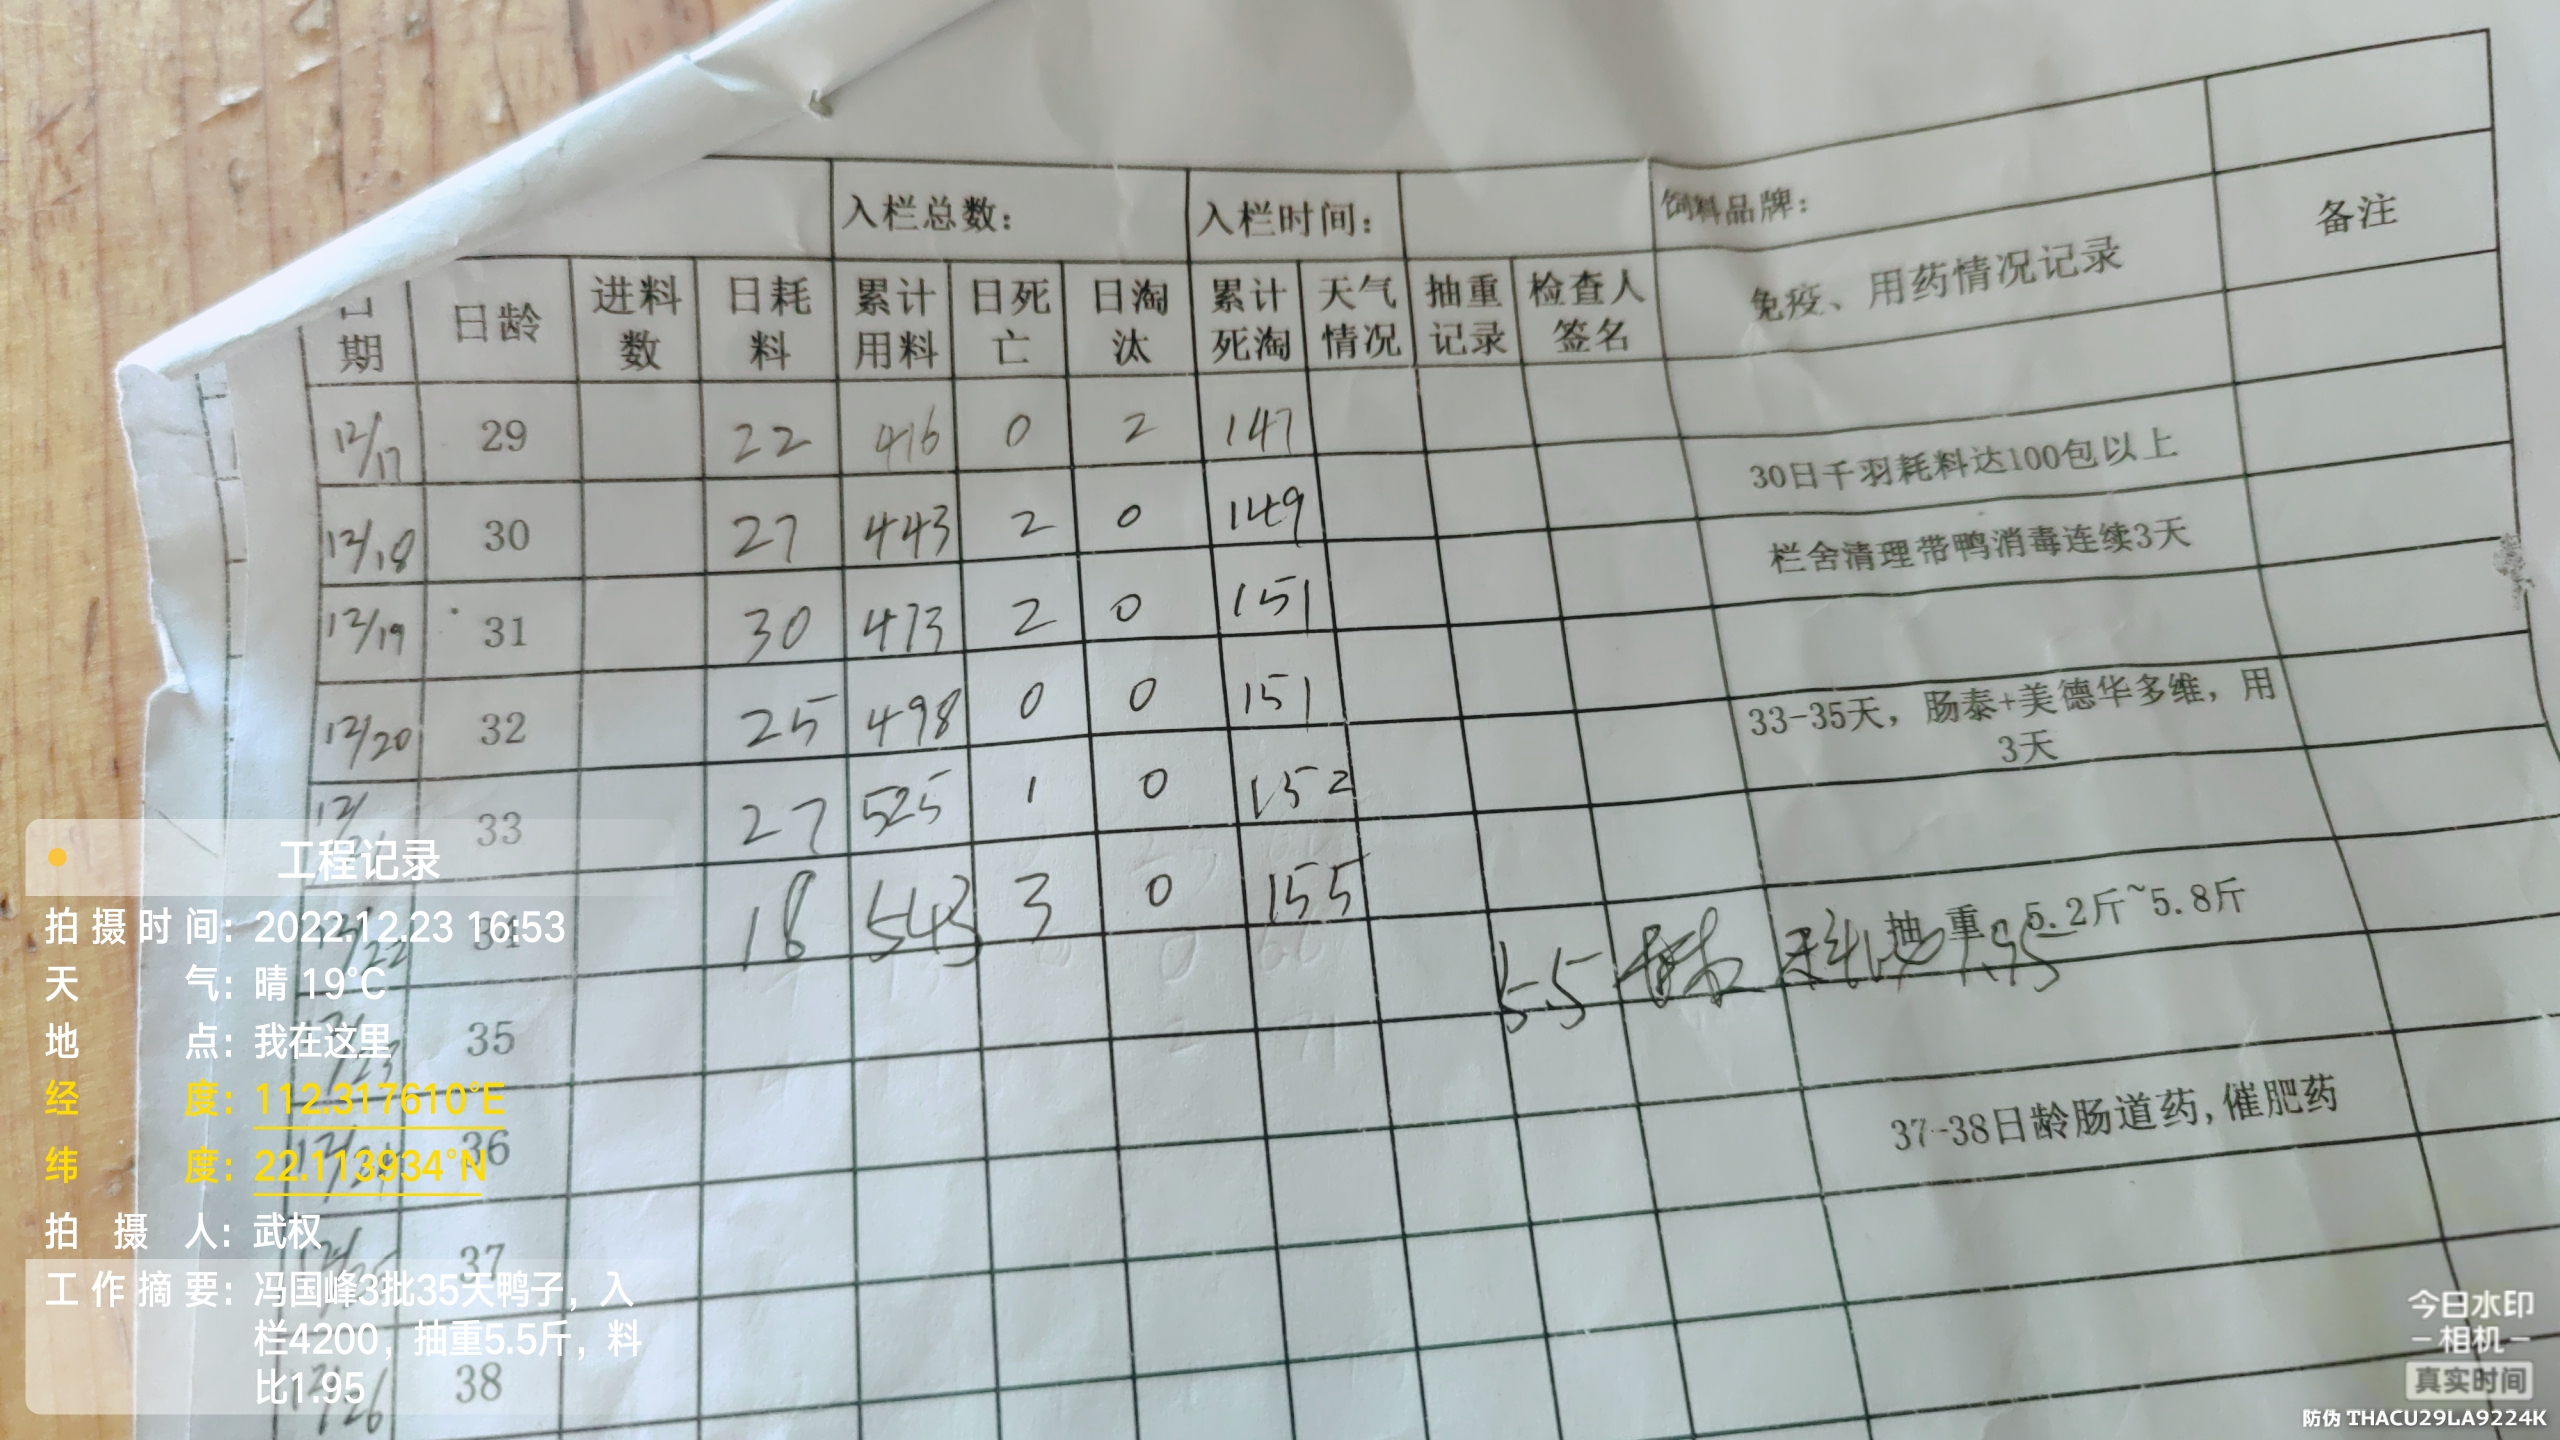 入栏总数： 入栏时间： 饲料品牌：
日期 日龄 进料数 日耗料 累计用料 日死亡 日淘汰 累计死淘 天气情况 抽重记录 检查人签名 免疫、用药情况记录 备注
12/17 29 22 416 0 2 147
30日千羽耗料达100包以上
12/18 30 27 443 2 0 149
栏舍清理带鸭消毒连续3天
12/19 31 30 473 2 0 151
12/20 32 25 498 0 0 151
33-35天，肠泰+美德华多维，用
3天
12/ 33 27 525 1 0 152
12/22 34 18 543 3 0 155
抽重：5.2斤~5.8斤
5.5 料比1.95
12/23 35
12/24 36
37-38日龄肠道药,催肥药
12/25 37
12/26 38
工程记录
拍摄时间：2022.12.23 16:53
天气：晴 19℃
地点：我在这里
经度：112.317610°E
纬度：22.113934°N
拍摄人：武权
工作摘要：冯国峰3批35天鸭子，入
栏4200，抽重5.5斤，料
比1.95
今日水印
相机
真实时间
防伪 THACU29LA9224K